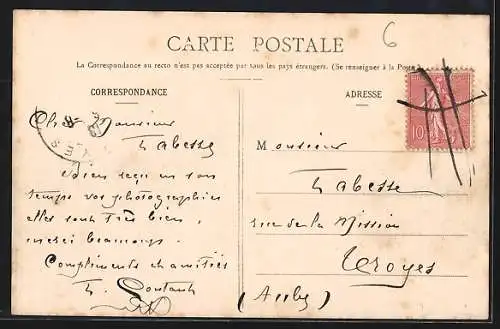 6
CARTE POSTALE
La Correspondance au recto n'est pas acceptée par tous les pays étrangers. (Se renseigner à la Poste)
CORRESPONDANCE
Cher Monsieur
Labesse
Bien reçu en son
temps vos photographies
elles sont très bien,
merci beaucoup.
Compliments & amitiés
ADRESSE
10
Monsieur
Labesse
rue de la Mission
Troyes
(Aube)